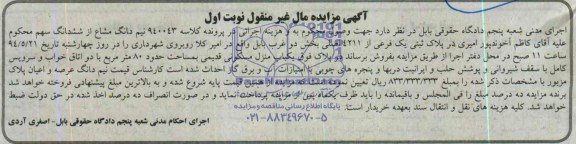 آگهی مزایده مال غیر منقول نوبت اول
اجرای مدنی شعبه پنجم دادگاه حقوقی بابل در نظر دارد جهت وصول محکوم به و هزینه اجرائی در پرونده کلاسه ۹۴۰۰۴۳ نیم دانگ مشاع از ششدانگ سهم محکوم
علیه آقای کاظم آخوندپور امیری در پلاک ثبتی یک فرعی از ۴۲۱۱ اصلی بخش دو غرب بابل واقع در امیر کلا روبروی شهرداری را در روز چهارشنبه تاریخ ۹۴/۵/۲۱
ساعت ۱۱ صبح در محل دفتر اجرا از طریق مزایده بفروش برساند و پلاک فوق یکباب منزل مسکونی قدیمی بمساحت حدود ۸۰ متر مربع با دو اتاق خواب و سرویس
کامل با سقف شیروانی و پوشش حلب و ایرانیت دربها و پنجره های چوبی با امتیازات آب و برق گاز احداث شده است کارشناس قیمت نیم دانگ عرصه و اعیان پلاک
مزبور با مشخصات ذکر شده را بمبلغ ۸۳۳/۳۳۳/۳۳۳ ریال تعیین نموده قیمت پایه شروع شده و به بالاترین مبلغ پیشنهادی فروخت خواهد شد
برنده مزایده ده درصد مبلغ را فی المجلس و باقیمانده را باید ظرف یکماه پس از مزایده پرداخت نماید و در صورت انصراف ده درصد اخذ شده در حق دولت ضبط
خواهد شد. کلیه هزینه های نقل و انتقال سند بعهده خریدار است.
پایگاه اطلاع رسانی مناقصه و مزایده
۰۲۱-۸۸۳۴۹۶۷۰-۵
اجرای احکام مدنی شعبه پنجم دادگاه حقوقی بابل- اصغری آزدی